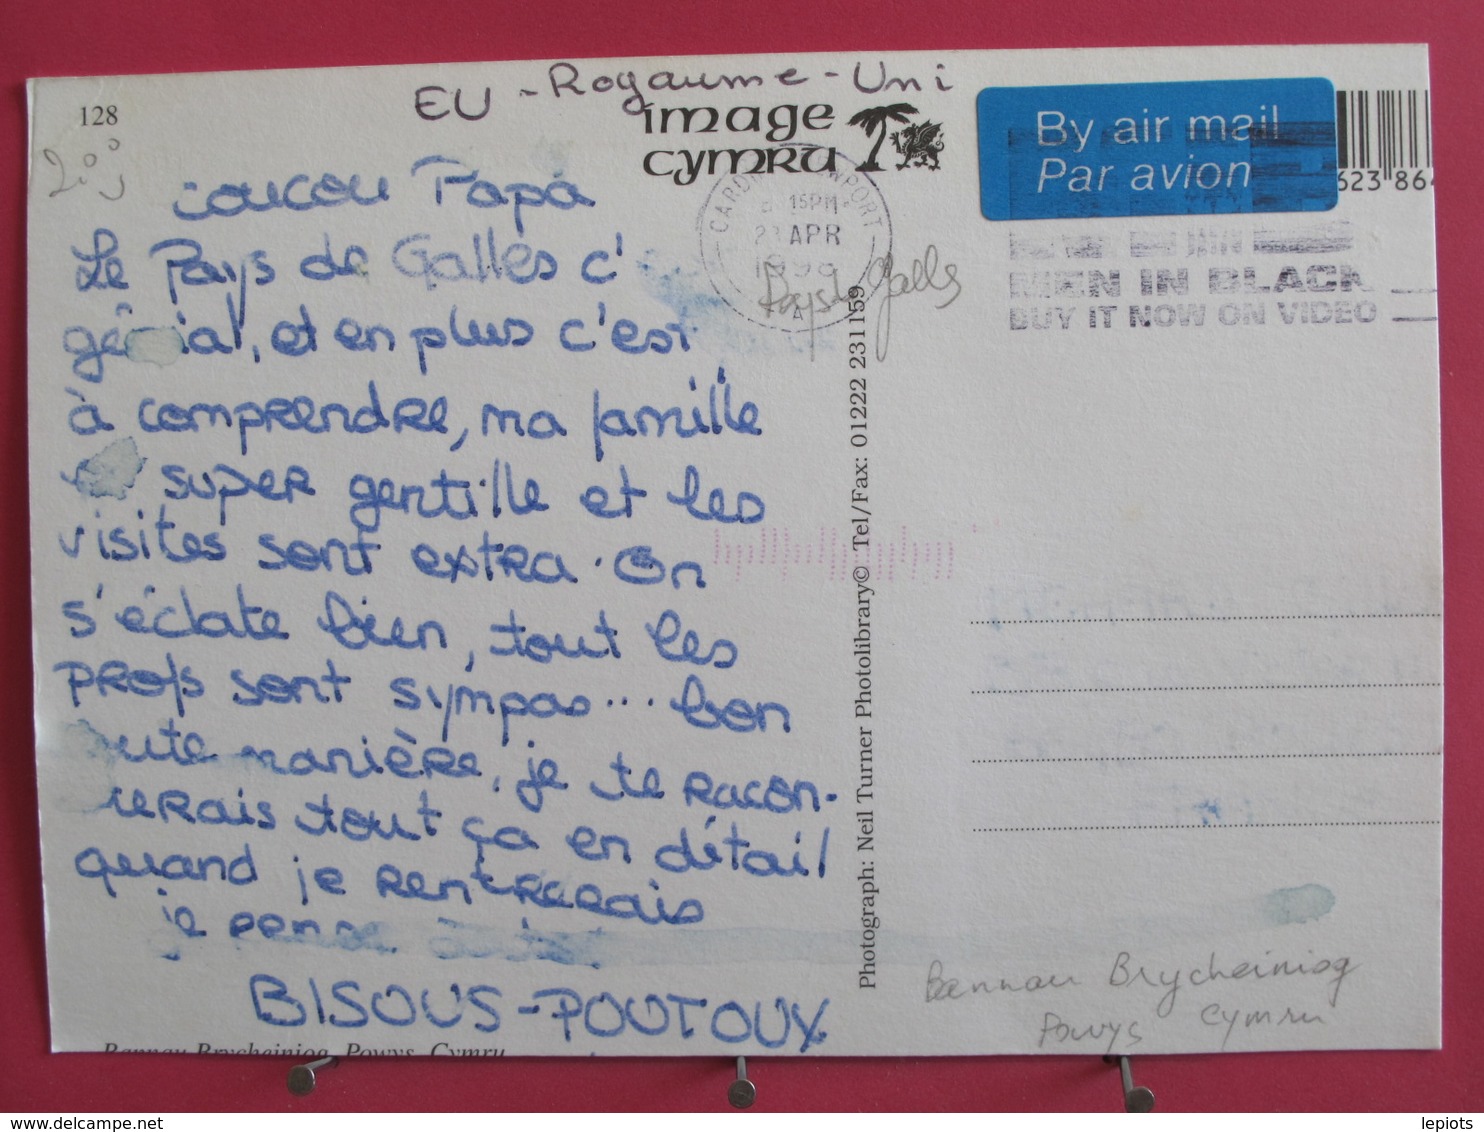 EU - Royaume-Uni
128
image
cymru
By air mail
Par avion
623 864
200
15PM
APR
MEN IN BLACK
BUY IT NOW ON VIDEO
Pays de Galles
coucou Papa
Le Pays de Galles c'
génial, et en plus c'est
à comprendre, ma famille
super gentille et les
visites sont extra. On
s'éclate bien, tout les
profs sont sympas... bon
manière, je te racon-
terais tout ça en détail
quand je rentrerais
je
BISOUS-POUTOUX
Photograph: Neil Turner Photolibrary© Tel/Fax: 01222 231159
Bannau Brycheiniog
Powys Cymru
Bannau Brycheiniog, Powys, Cymru
lepiots
delcampe.net